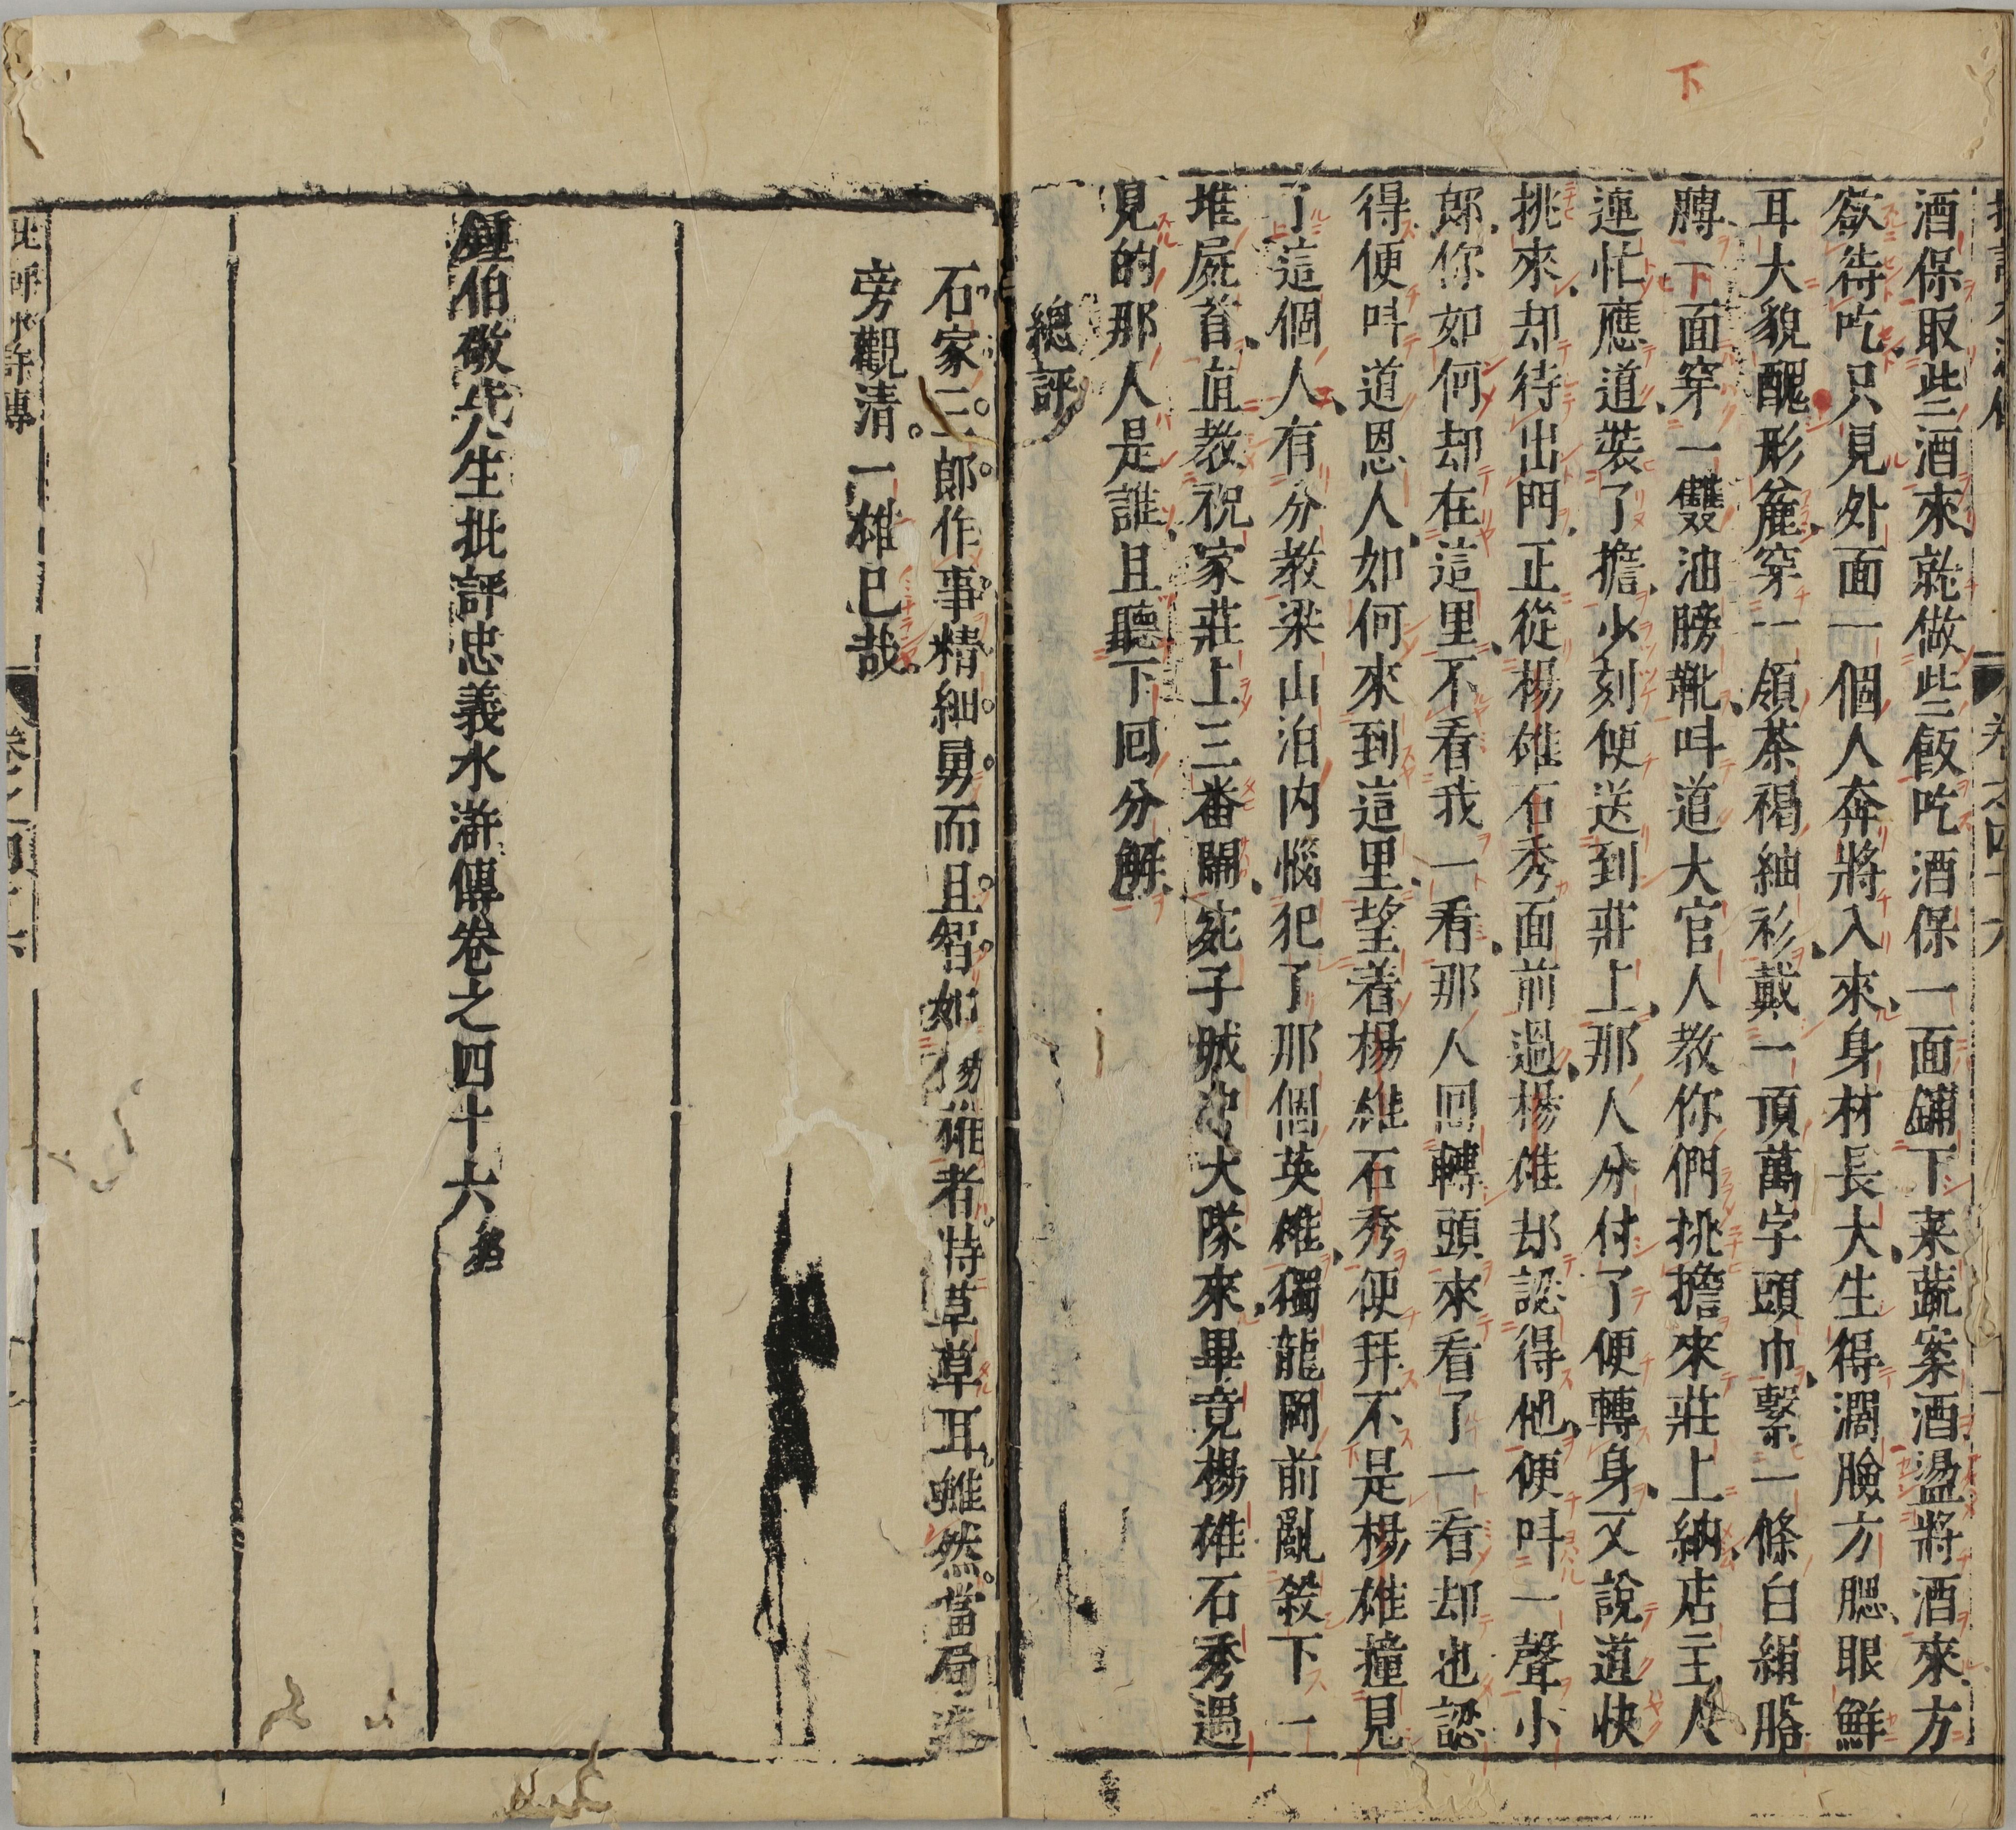 下
酒保取些酒來就做些飯吃酒保一面鋪下菜蔬案酒盪將酒來方
欲待吃只見外面一個人奔將入來身材長大生得濶臉方腮眼鮮
耳大貌醜形麄穿一領茶褐紬衫戴一頂萬字頭巾繫一條白絹膊
膊下面穿一雙油膀靴叫道大官人教你們挑擔來莊上納店主人
連忙應道裝了擔少刻便送到莊上那人分付了便轉身又說道快
挑來却待出門正從楊雄石秀面前過楊雄却認得他便叫一聲小
郎你如何却在這里不看我一看那人回轉頭來看了一看却也認
得便叫道恩人如何來到這里望着楊雄石秀便拜不是楊雄撞見
了這個人有分教梁山泊内惱犯了那個英雄獨龍岡前亂殺下一
堆屍首直教祝家莊上三番鬧宛子城中大隊來畢竟楊雄石秀遇
見的那人是誰且聽下回分解
總評
石家三郎作事精細勇而且智如楊雄者特草草耳雖然當局迷
旁觀清一雄已哉
鍾伯敬先生批評忠義水滸傳卷之四十六終
批評水滸傳
卷之四十六